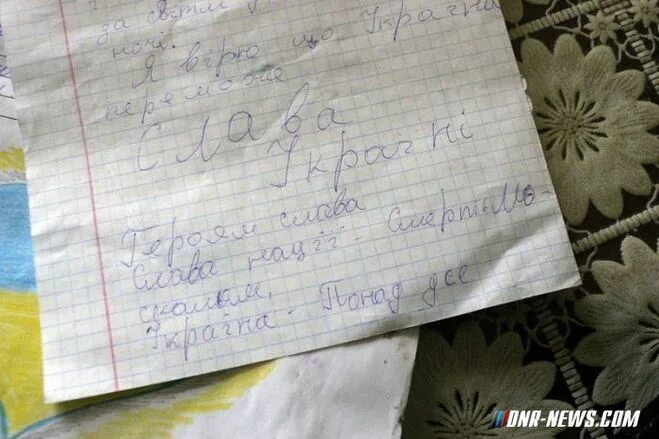 за світлі
ночі.
Я вірю що Україна
переможе
Слава
Україні
Героям слава
Слава нації - Смерть Мо-
скалям,
Україна - Понад усе
DNR-NEWS.COM